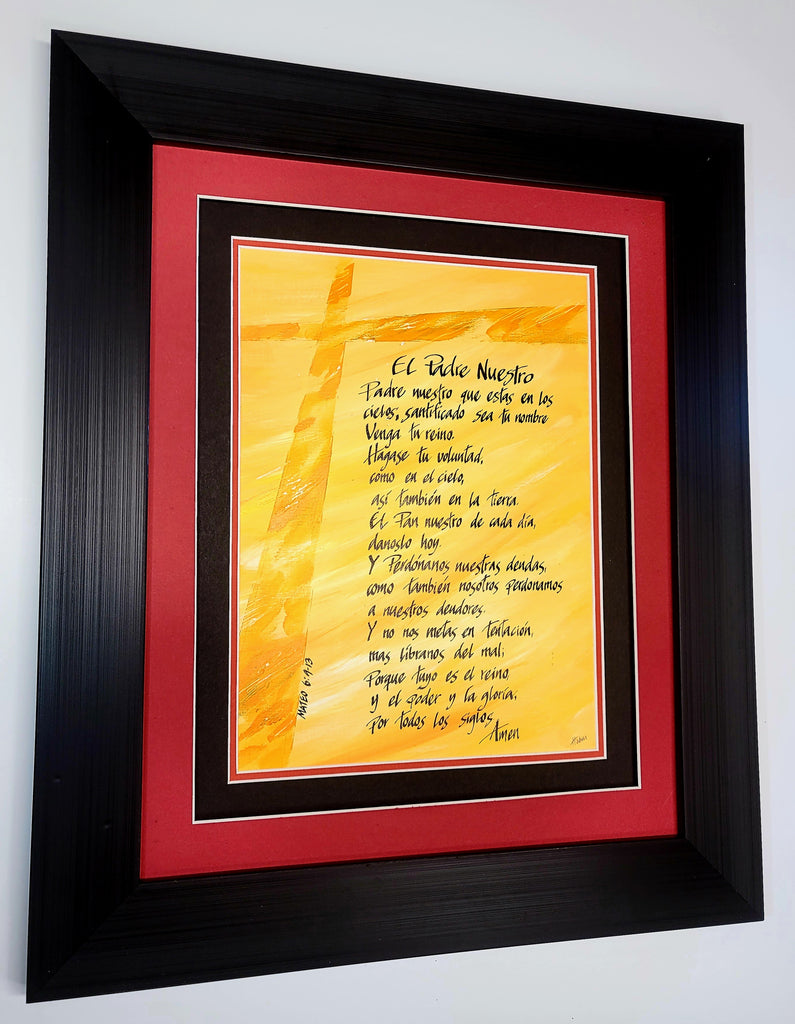 El Padre Nuestro
Padre nuestro que estas en los
cielos, santificado sea tu nombre
Venga tu reino.
Hagase tu voluntad,
como en el cielo,
así también en la tierra.
El Pan nuestro de cada día,
danoslo hoy.
Y Perdónanos nuestras deudas,
como también nosotros perdonamos
a nuestros deudores.
Y no nos metas en tentación,
mas libranos del mal;
Porque tuyo es el reino,
y el poder y la gloria,
por todos los siglos
Amen
MATEO 6:9-13